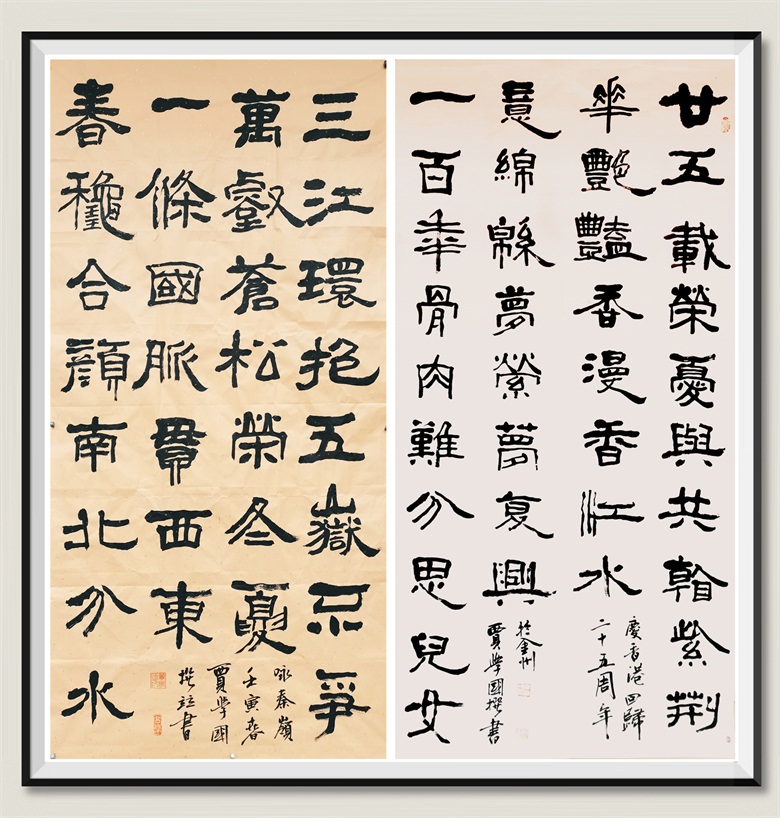 廿五載榮憂與共翰紫荆
華艷豔香漫香江水
慶香港回歸
二十五周年
一百年骨肉難分思兒女
意綿緜夢縈夢复興
於金州
賈學國撰書
三江環抱五嶽不爭
萬壑蒼松榮冬夏
春穐合顏南北分水
一條國脈貫西東
咏秦嶺
壬寅春
賈學國
撰並書